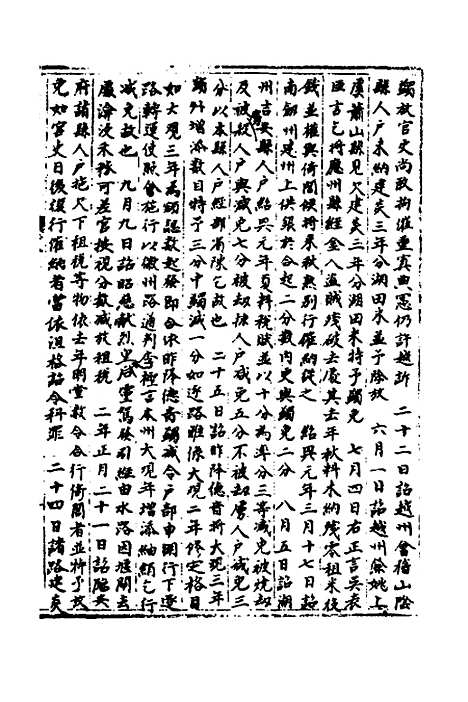 蠲放官吏尚敢拘催重寘典憲仍許越訴　二十二日詔越州會稽山陰
縣人户未納建炎三年分湖田米並予除放　六月一日詔越州餘姚上
虞蕭山縣見欠建炎三年分湖田米特予蠲免　七月四日右正言吳表
臣言乞將處州縣經金人盜賊殘破去處其去年秋料未納殘零租米役
錢並權與倚閣候將來秋熟別行催納從之　紹興元年三月十七日詔
南劍州建州上供銀於合起二分數内更與蠲免二分　八月五日詔湖
州吉安縣人户紹興元年夏料稅賦並以十分為率分三等減免被燒却
及被殺人户與減免七分被却擄人户減免五分不被却虜人户減免三
分以本縣人户經都省陳乞故也　二十五日詔昨降德音所大觀三年
額外增添數目特予三分中蠲減一分如近路雖係大觀二年修定格目
如大觀三年為額認數起發即合依昨降德音蠲減令户部申明行下逐
路轉運使照會施行以徽州路通判李極言本州大觀年增添紬額乞行
減免故也　九月九日詔昭慈獻烈皇后靈駕發引經由水路因隄開去
處渰浸禾稼可差官按視分數減放租稅　二年正月二十一日詔臨安
府諸縣人户拖欠下租稅等物依去年明堂赦令合行倚閣者並特予放
免如官吏日後復行催納者當依沮格詔令科罪　二十四日諸路建炎